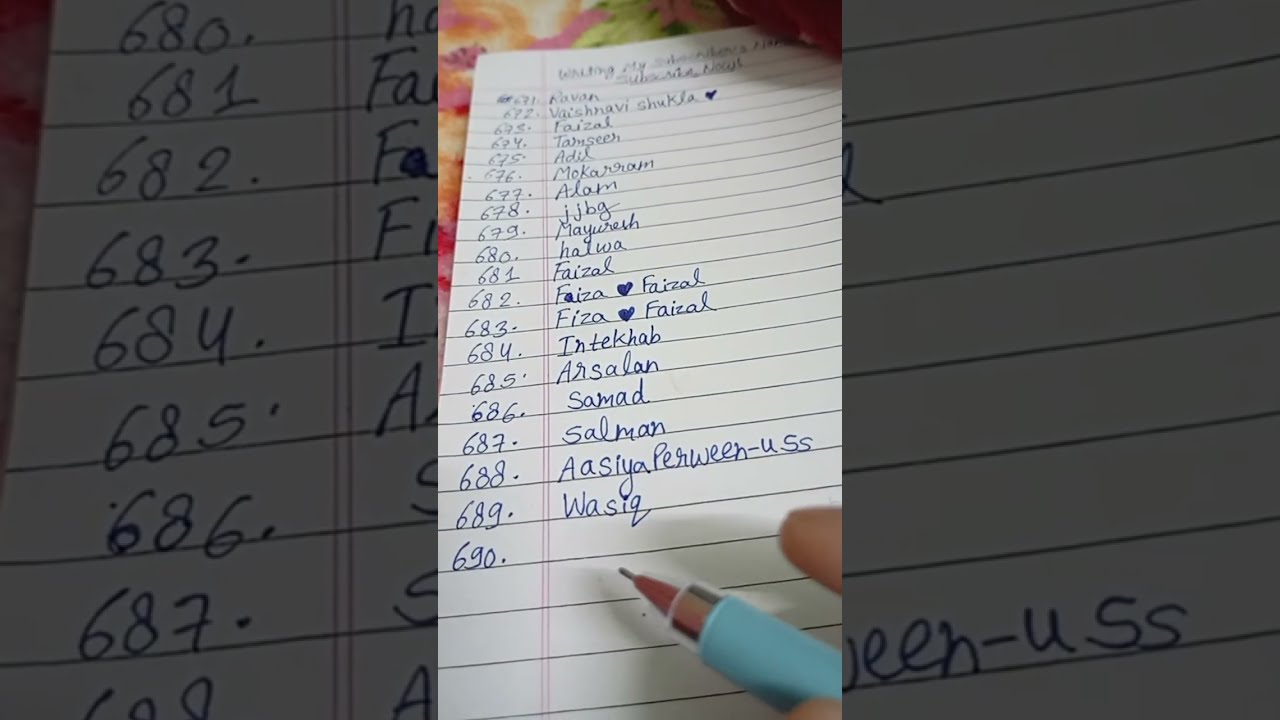 Writing My Subscriber's Name
Subscribe Now!
671. Ravan
672. Vaishnavi shukla ♥
673. Faizal
674. Tamseer
675. Adil
676. Mokarram
677. Alam
678. jjbg
679. Mayuresh
680. halwa
681 Faizal
682. Faiza ♥ Faizal
683. Fiza ♥ Faizal
684. Intekhab
685. Arsalan
686. Samad
687. Salman
688. AasiyaPerween-uSs
689. Wasiq
690.